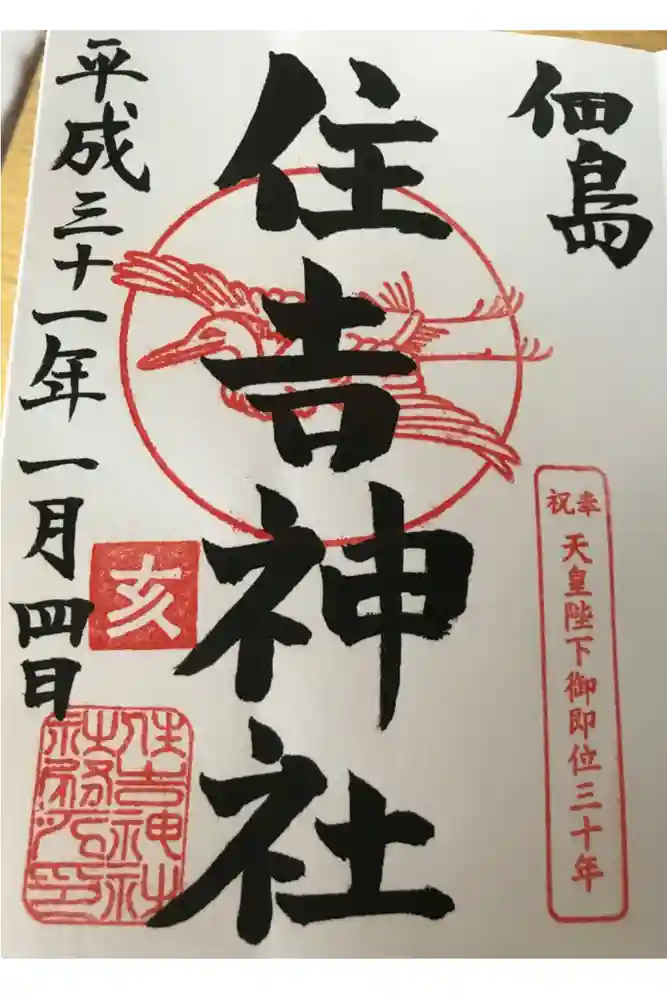 佃島
奉祝
天皇陛下御即位三十年
住吉神社
亥
平成三十一年一月四日
住吉神社
社務所印